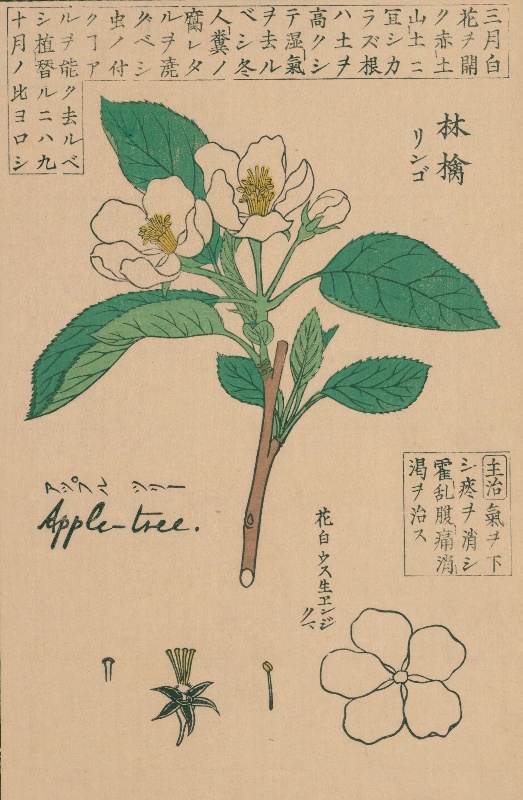 三月白
花ヲ開
ク赤土
山土ニ
冝シカ
ラズ根
ハ土ヲ
高クシ
テ湿氣
ヲ去ル
ベシ冬
人糞ノ
腐レタ
ルヲ澆
グベシ
虫ノ付
クヿア
ルヲ能ク去ルベ
シ植替ルニハ九
十月ノ比ヨロシ
林檎
リンゴ
主治氣ヲ下
シ痰ヲ消シ
霍乱腹痛消
渇ヲ治ス
アップル ツリー
Apple-tree.
花白ウス生ヱンジ
クマ